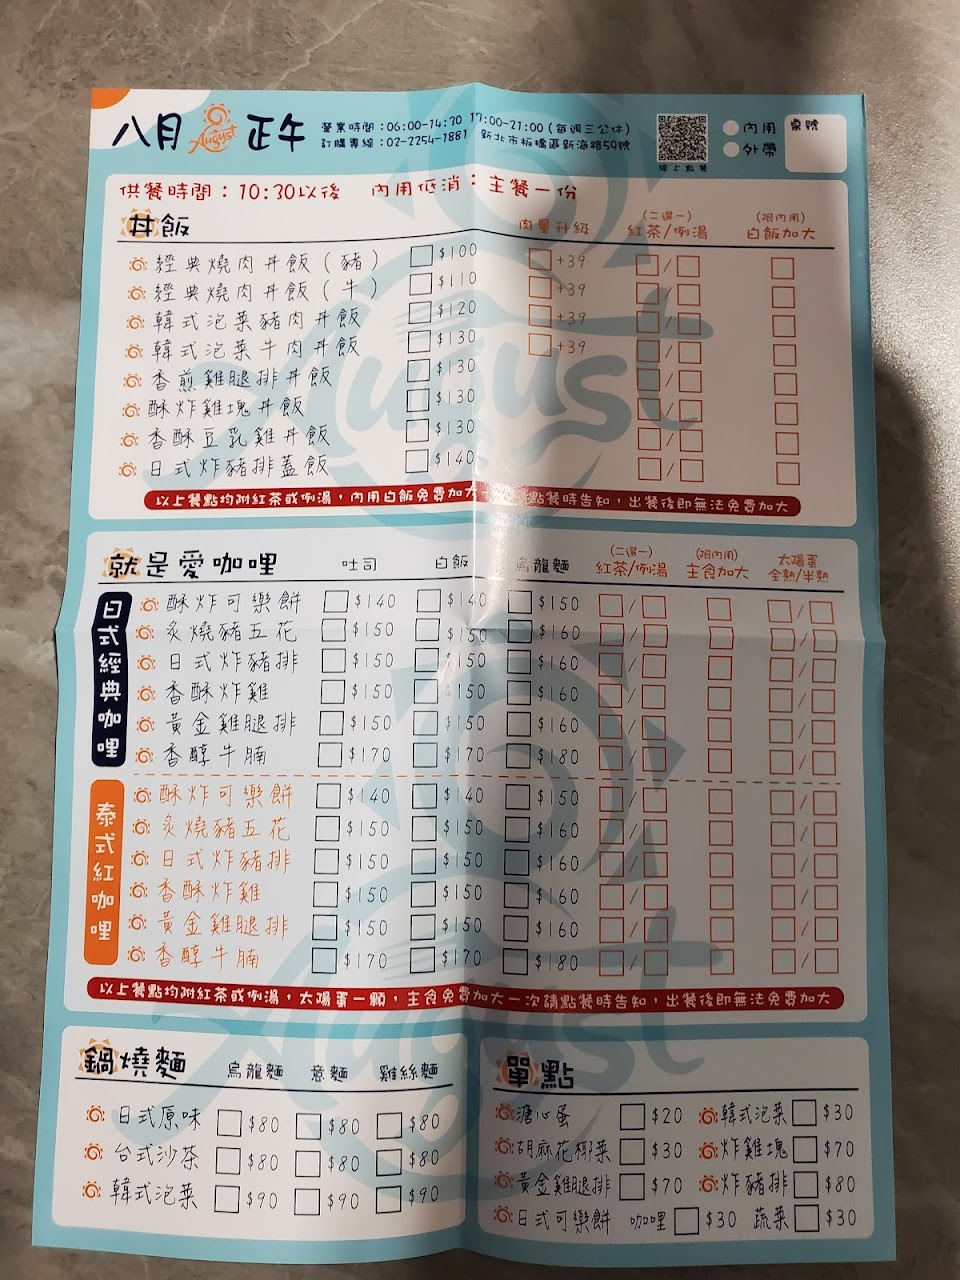 八月 August 正午
營業時間：06:00-14:30 17:00-21:00（每週三公休）
訂購專線：02-2254-1881 新北市板橋區新海路59號
線上點餐
內用
外帶
桌號
供餐時間：10:30以後 內用低消：主餐一份
丼飯 肉量升級 （二選一）紅茶/例湯 （限內用）白飯加大
經典燒肉丼飯（豬） $100 +39 /
經典燒肉丼飯（牛） $110 +39 /
韓式泡菜豬肉丼飯 $120 +39 /
韓式泡菜牛肉丼飯 $130 +39 /
香煎雞腿排丼飯 $130 /
酥炸雞塊丼飯 $130 /
香酥豆乳雞丼飯 $130 /
日式炸豬排蓋飯 $140 /
以上餐點均附紅茶或例湯，內用白飯免費加大 點餐時告知，出餐後即無法免費加大
就是愛咖哩 吐司 白飯 烏龍麵 （二選一）紅茶/例湯 （限內用）主食加大 太陽蛋 全熟/半熟
日式經典咖哩
酥炸可樂餅 $140 $140 $150 / /
炙燒豬五花 $150 $150 $160 / /
日式炸豬排 $150 $150 $160 / /
香酥炸雞 $150 $150 $160 / /
黃金雞腿排 $150 $150 $160 / /
香醇牛腩 $170 $170 $180 / /
泰式紅咖哩
酥炸可樂餅 $140 $140 $150 / /
炙燒豬五花 $150 $150 $160 / /
日式炸豬排 $150 $150 $160 / /
香酥炸雞 $150 $150 $160 / /
黃金雞腿排 $150 $150 $160 / /
香醇牛腩 $170 $170 $180 / /
以上餐點均附紅茶或例湯，太陽蛋一顆，主食免費加大一次請點餐時告知，出餐後即無法免費加大
鍋燒麵 烏龍麵 意麵 雞絲麵
日式原味 $80 $80 $80
台式沙茶 $80 $80 $80
韓式泡菜 $90 $90 $90
單點
溏心蛋 $20 韓式泡菜 $30
胡麻花椰菜 $30 炸雞塊 $70
黃金雞腿排 $70 炸豬排 $80
日式可樂餅 咖哩 $30 蔬菜 $30
August
August